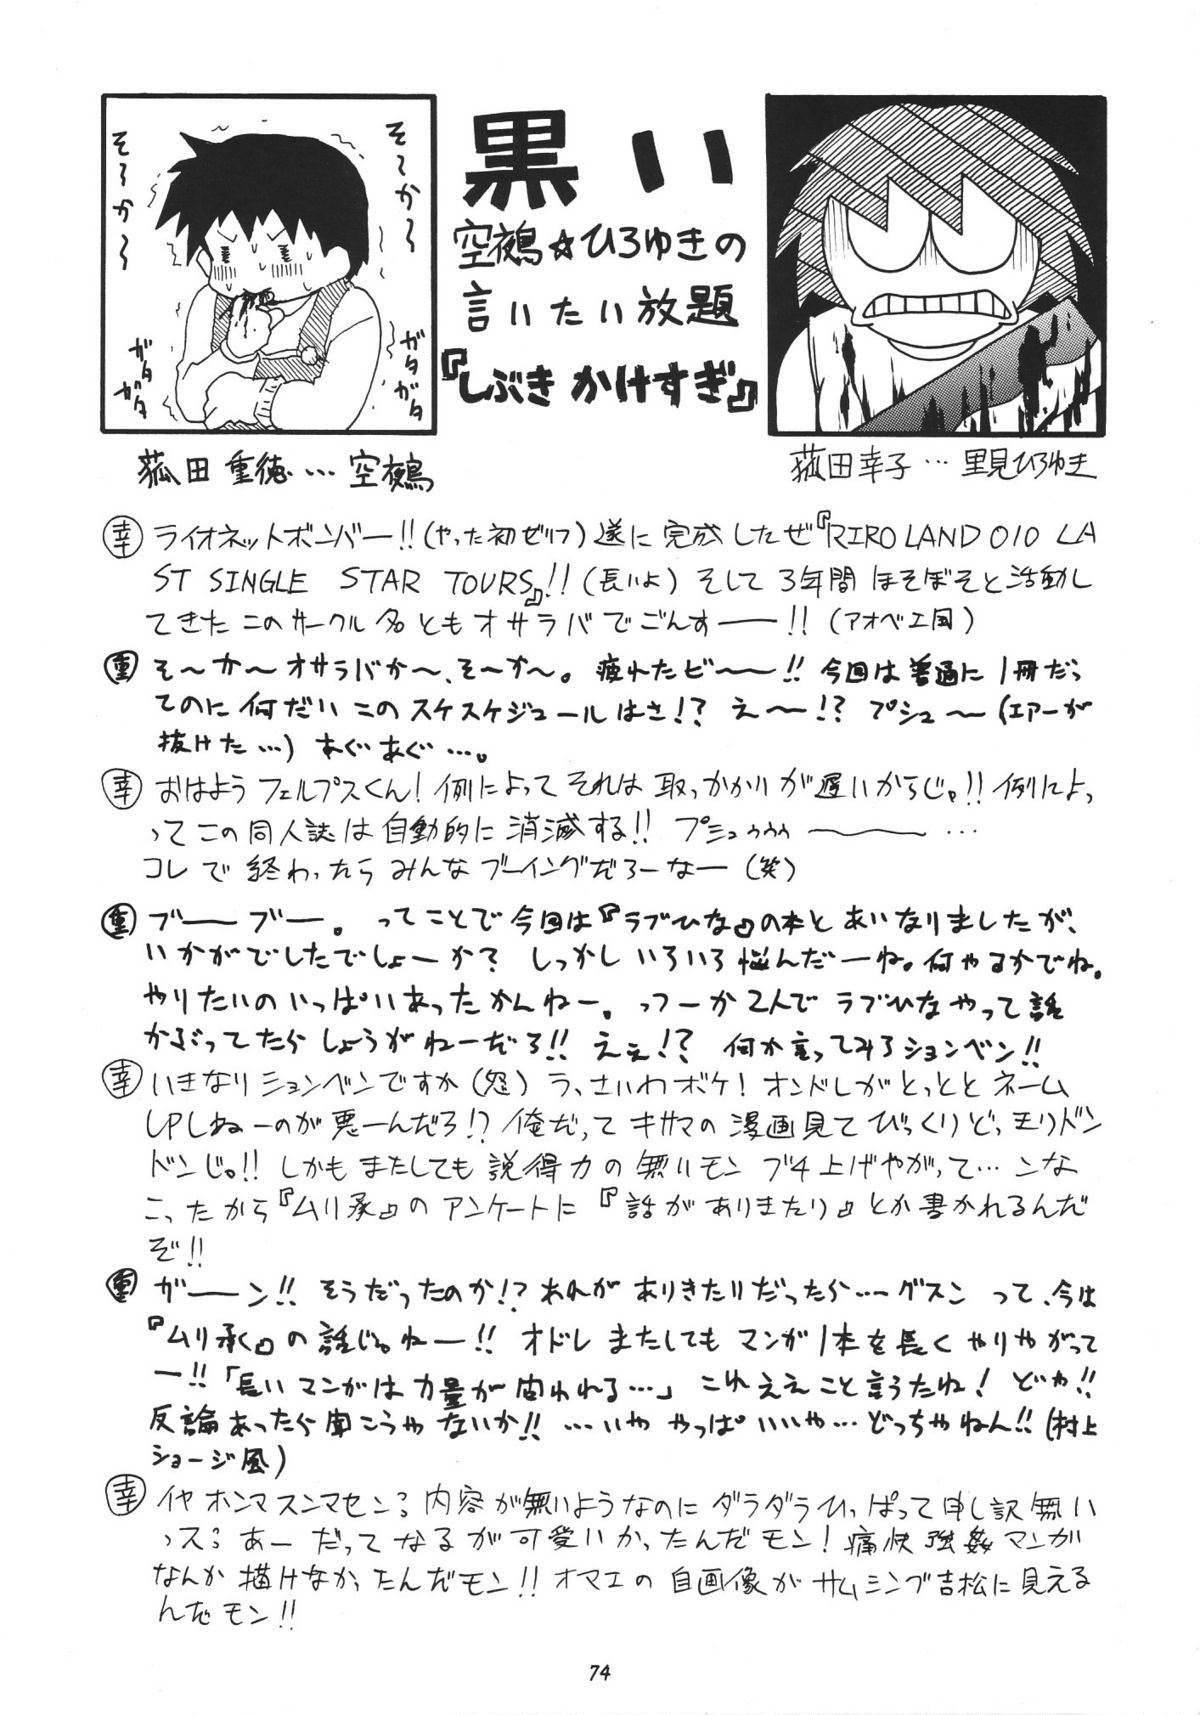 そ〜か〜
そ〜か〜
ガタガタ
ガタガタ
黒い
空鵺☆ひろゆきの
言いたい放題
『しぶきかけすぎ』
菰田重徳…空鵺
菰田幸子…里見ひろゆき
幸 ライオネットボンバー!!(やった初ゼリフ)遂に完成したぜ『RIRO LAND 010 LA
ST SINGLE STAR TOURS』!!(長いよ)そして3年間ほそぼそと活動し
てきたこのサークル名ともオサラバでごんすー!!(アオベエ風)
重 そ〜か〜オサラバか〜、そ〜か〜。疲れたビ〜!!今回は普通に1冊だっ
てのに何だいこのスケスケジュールはさ!?え〜!?プシュ〜(エアーが
抜けた…)あぐあぐ…。
幸 おはようフェルプスくん!例によってそれは取っかかりが遅いからじゃ!!例によっ
ってこの同人誌は自動的に消滅する!!プシュゥゥゥ〜…
コレで終わったらみんなブーイングだろーなー(笑)
重 ブーブー。ってことで今回は『ラブひな』の本とあいなりましたが、
いかがでしたでしょーか?しっかしいろいろ悩んだーね。何やるかでね。
やりたいのいっぱいあったかんねー。っつーか2人でラブひなやって話
かぶってたらしょうがねーだろ!!ええ!?何か言ってみろションベン!!
幸 いきなりションベンですか(怨)うっさいわボケ!オンドレがとっととネーム
UPしねーのが悪ーんだろ!?俺だってキサマの漫画見てびっくりどっきりドン
ドンじゃ!!しかもまたしても説得力の無いモンブチ上げやがって…ンな
こったから『ムリ承』のアンケートに『話がありきたり』とか書かれるんだ
ぞ!!
重 ガーン!!そうだったのか!?あれがありきたりだったら…グスン って、今は
『ムリ承』の話じゃねー!!オドレまたしてもマンガ1本を長くやりやがって
ー!!「長いマンガは力量が問われる…」これええこと言うたね!どや!!
反論あったら聞こうやないか!!…いややっぱいいや…どっちやねん!!(村上
ショージ風)
幸 イヤホンマスンマセン?内容が無いようなのにダラダラひっぱって申し訳無い
っス?あーだってなるが可愛いかったんだモン!痛快強姦マンガ
なんか描けなかったんだモン!!オマエの自画像がサムシング吉松に見える
んだモン!!
74